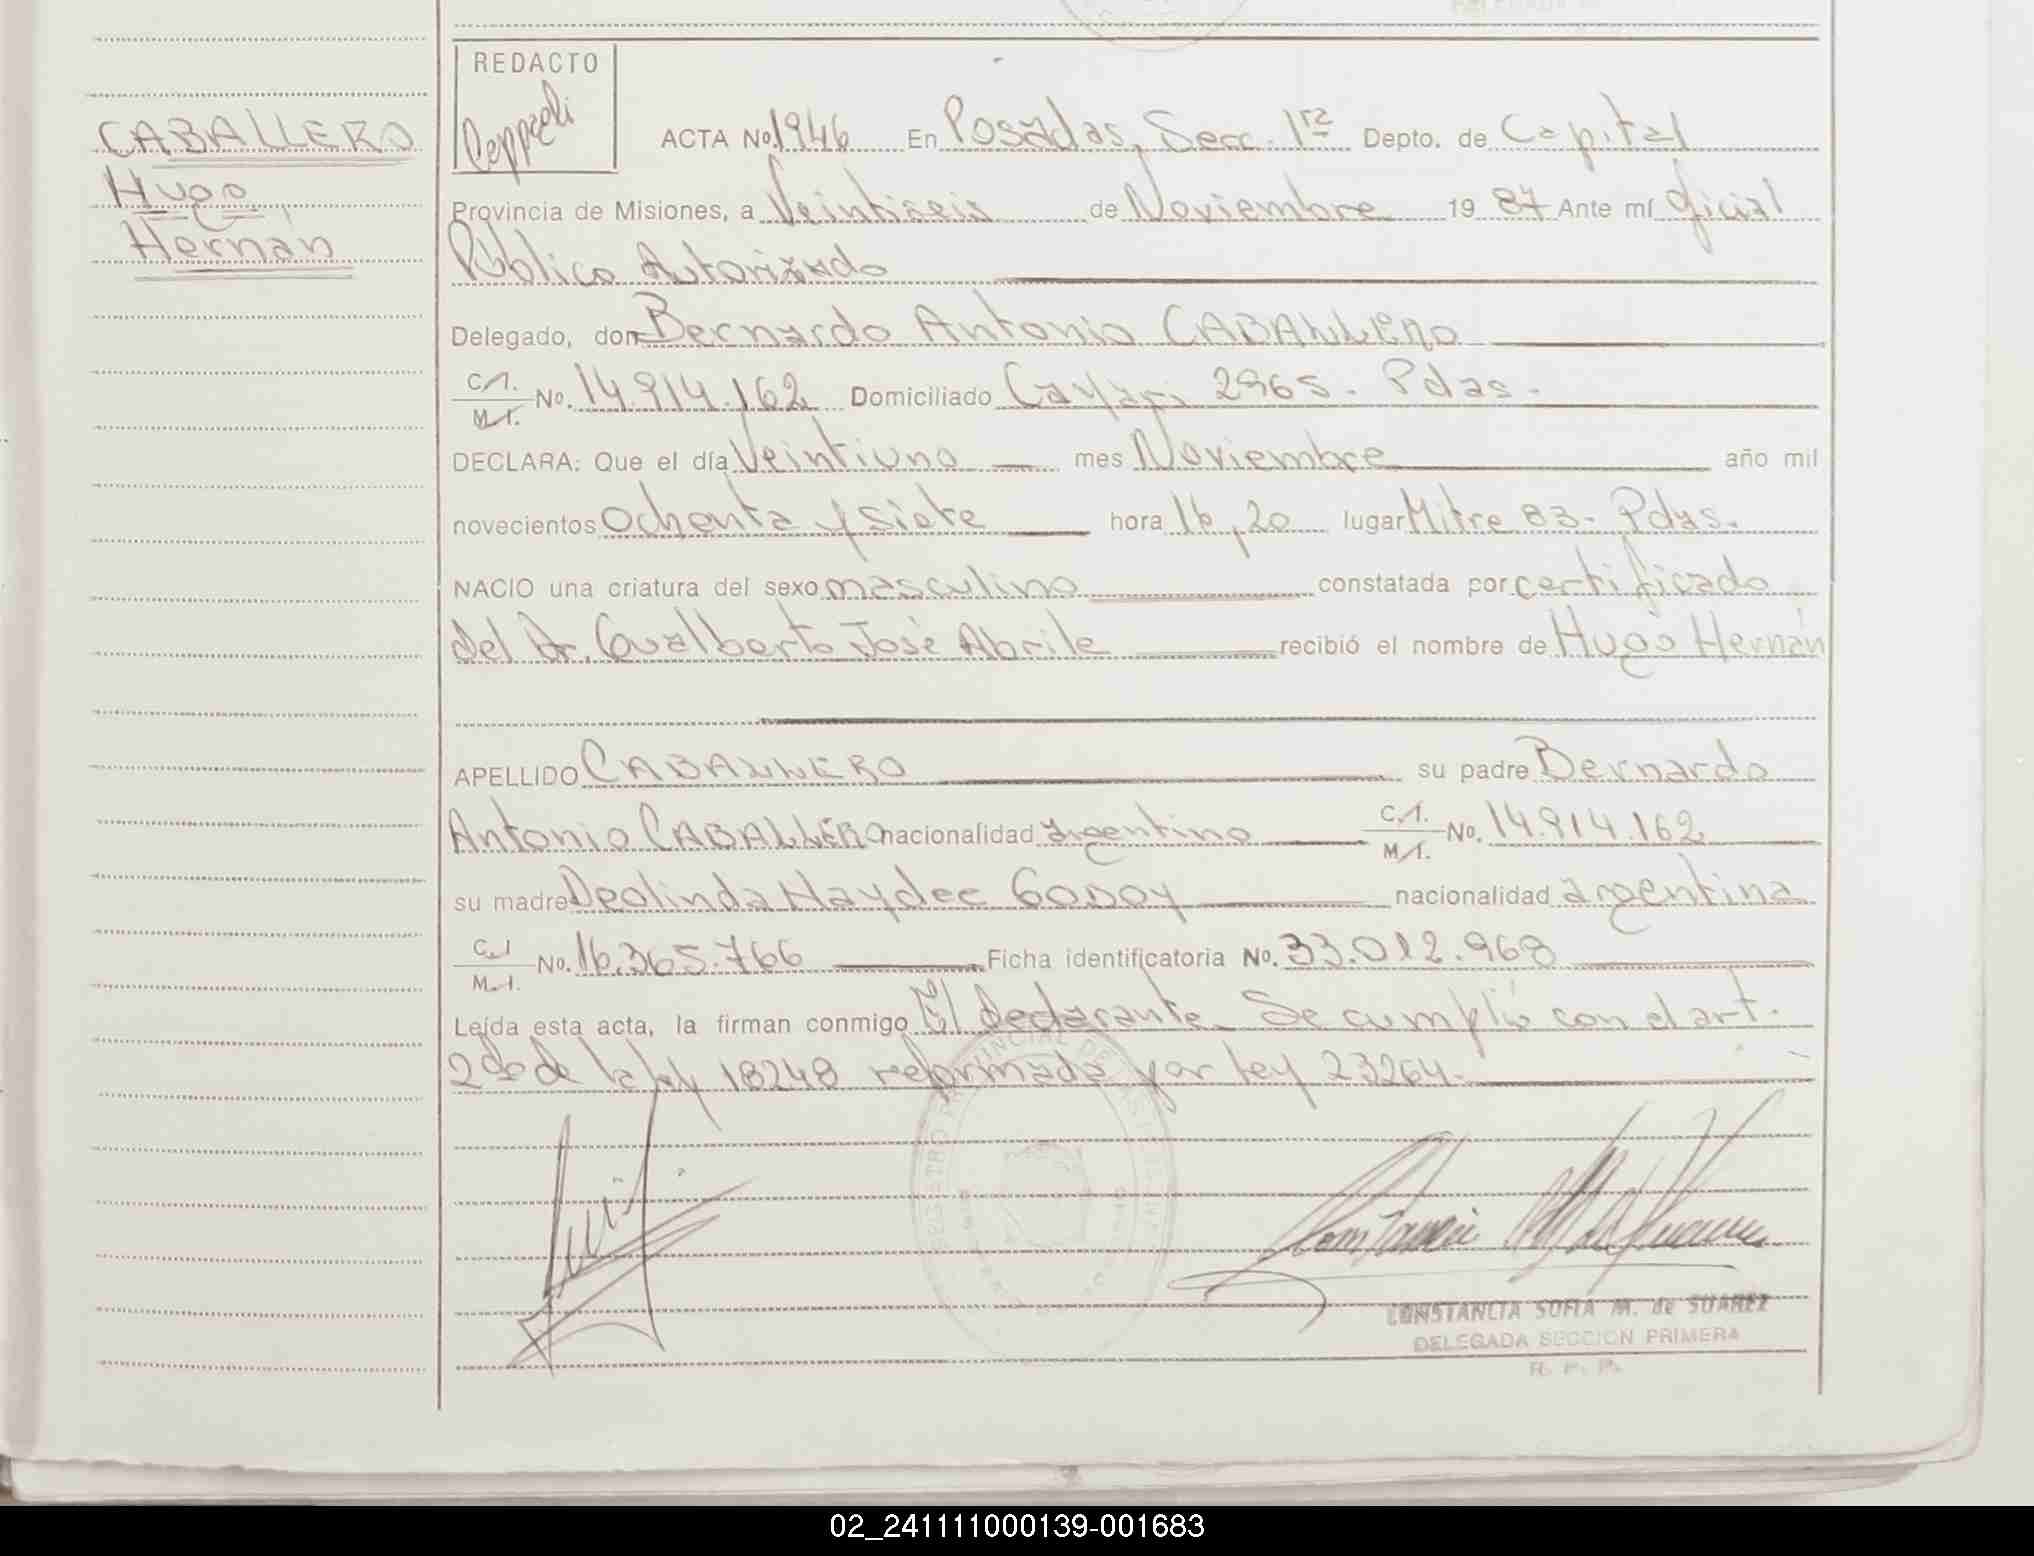 REDACTO
CABALLERO
Hugo
Hernán
ACTA No. 1946 En Posadas, Secc. 1ra Depto. de Capital
Provincia de Misiones, a Veintiseis de Noviembre 19 87 Ante mí Oficial
Público Autorizado
Delegado, don Bernardo Antonio CABALLERO
C.I. M.I. No. 14.914.162 Domiciliado 2965. Pdas.
DECLARA: Que el día Veintiuno mes Noviembre año mil
novecientos ochenta y siete hora 16,20 lugar Mitre 83- Pdas.
NACIO una criatura del sexo masculino constatada por certificado
del Dr. Gualberto José Abrile recibió el nombre de Hugo Hernán
APELLIDO CABALLERO su padre Bernardo
Antonio CABALLERO nacionalidad argentino C.I. M.I. No. 14.914.162
su madre Deolinda Haydee GODOY nacionalidad argentina
C.I. M.I. No. 16.365.766 Ficha identificatoria No. 33.012.968
Leída esta acta, la firman conmigo El declarante. Se cumplió con el art.
2do de la ley 18248 reformada por ley 23264.
CONSTANCIA SOFIA M. de SUAREZ
DELEGADA SECCION PRIMERA
R. P. P.
02_241111000139-001683